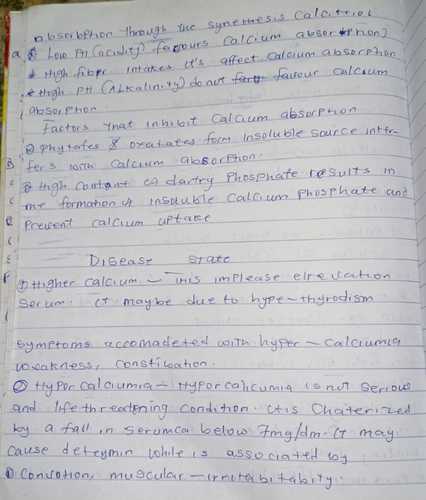 absorbption through the synethesis Calcitriol
a ① Low PH (acidity) favours calcium absorption
* High fiber intakes it's affect calcium absorption
* High PH (Alkalinity) do not favour calcium
absorption.
Factors that inhibit calcium absorption
① Phytates & oxatates form insoluble source inter-
fers with calcium absorption.
② High content of diartry Phosphate results in
the formation of insoluble calcium phosphate and
Prevent calcium uptake
Disease State
① Higher calcium – This implease elrevation
Serum. It maybe due to hype-thyrodism
Symptoms accomadeted with hyper-calciumia
weakness, constibation.
② Hypor calciumia – Hyporcalicumia is not serious
and life threatening condition. It is Chaterized
by a fall in serumca below 7mg/dm. It may
cause deteymin while is associated by
① Convotion, muscular-irritabitability.